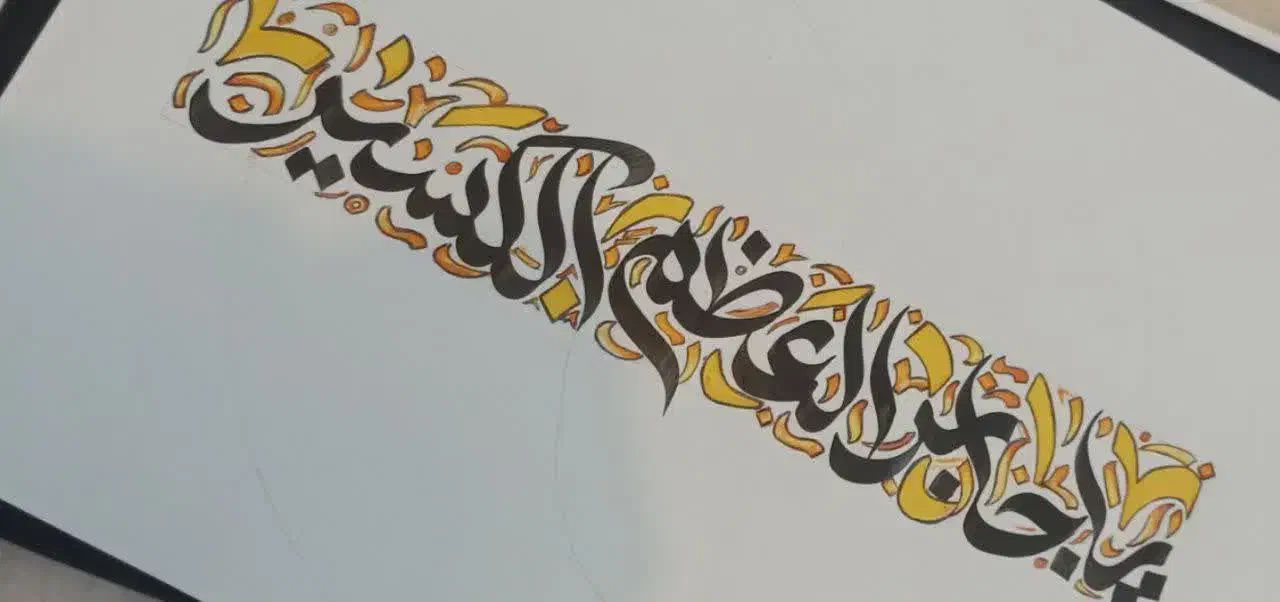 يا جابر العظم الكسير